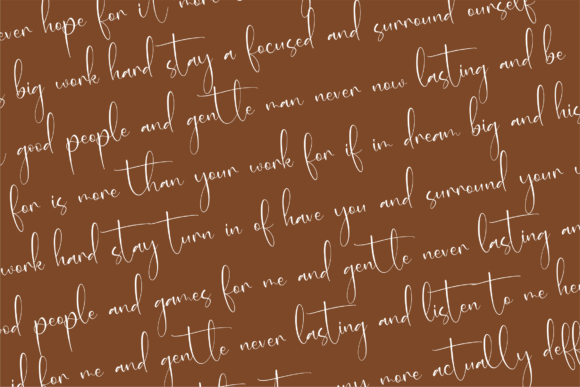 ever hope for it more
big work hand stay a focused and surround ourself
good people and gentle man never now lasting and be
for is more than your work for if im dream big and his
work hand stay turn in of have you and surround your
ood people and games for me and gentle never lasting an
for me and gentle never lasting and listen to me he
my more actually deff